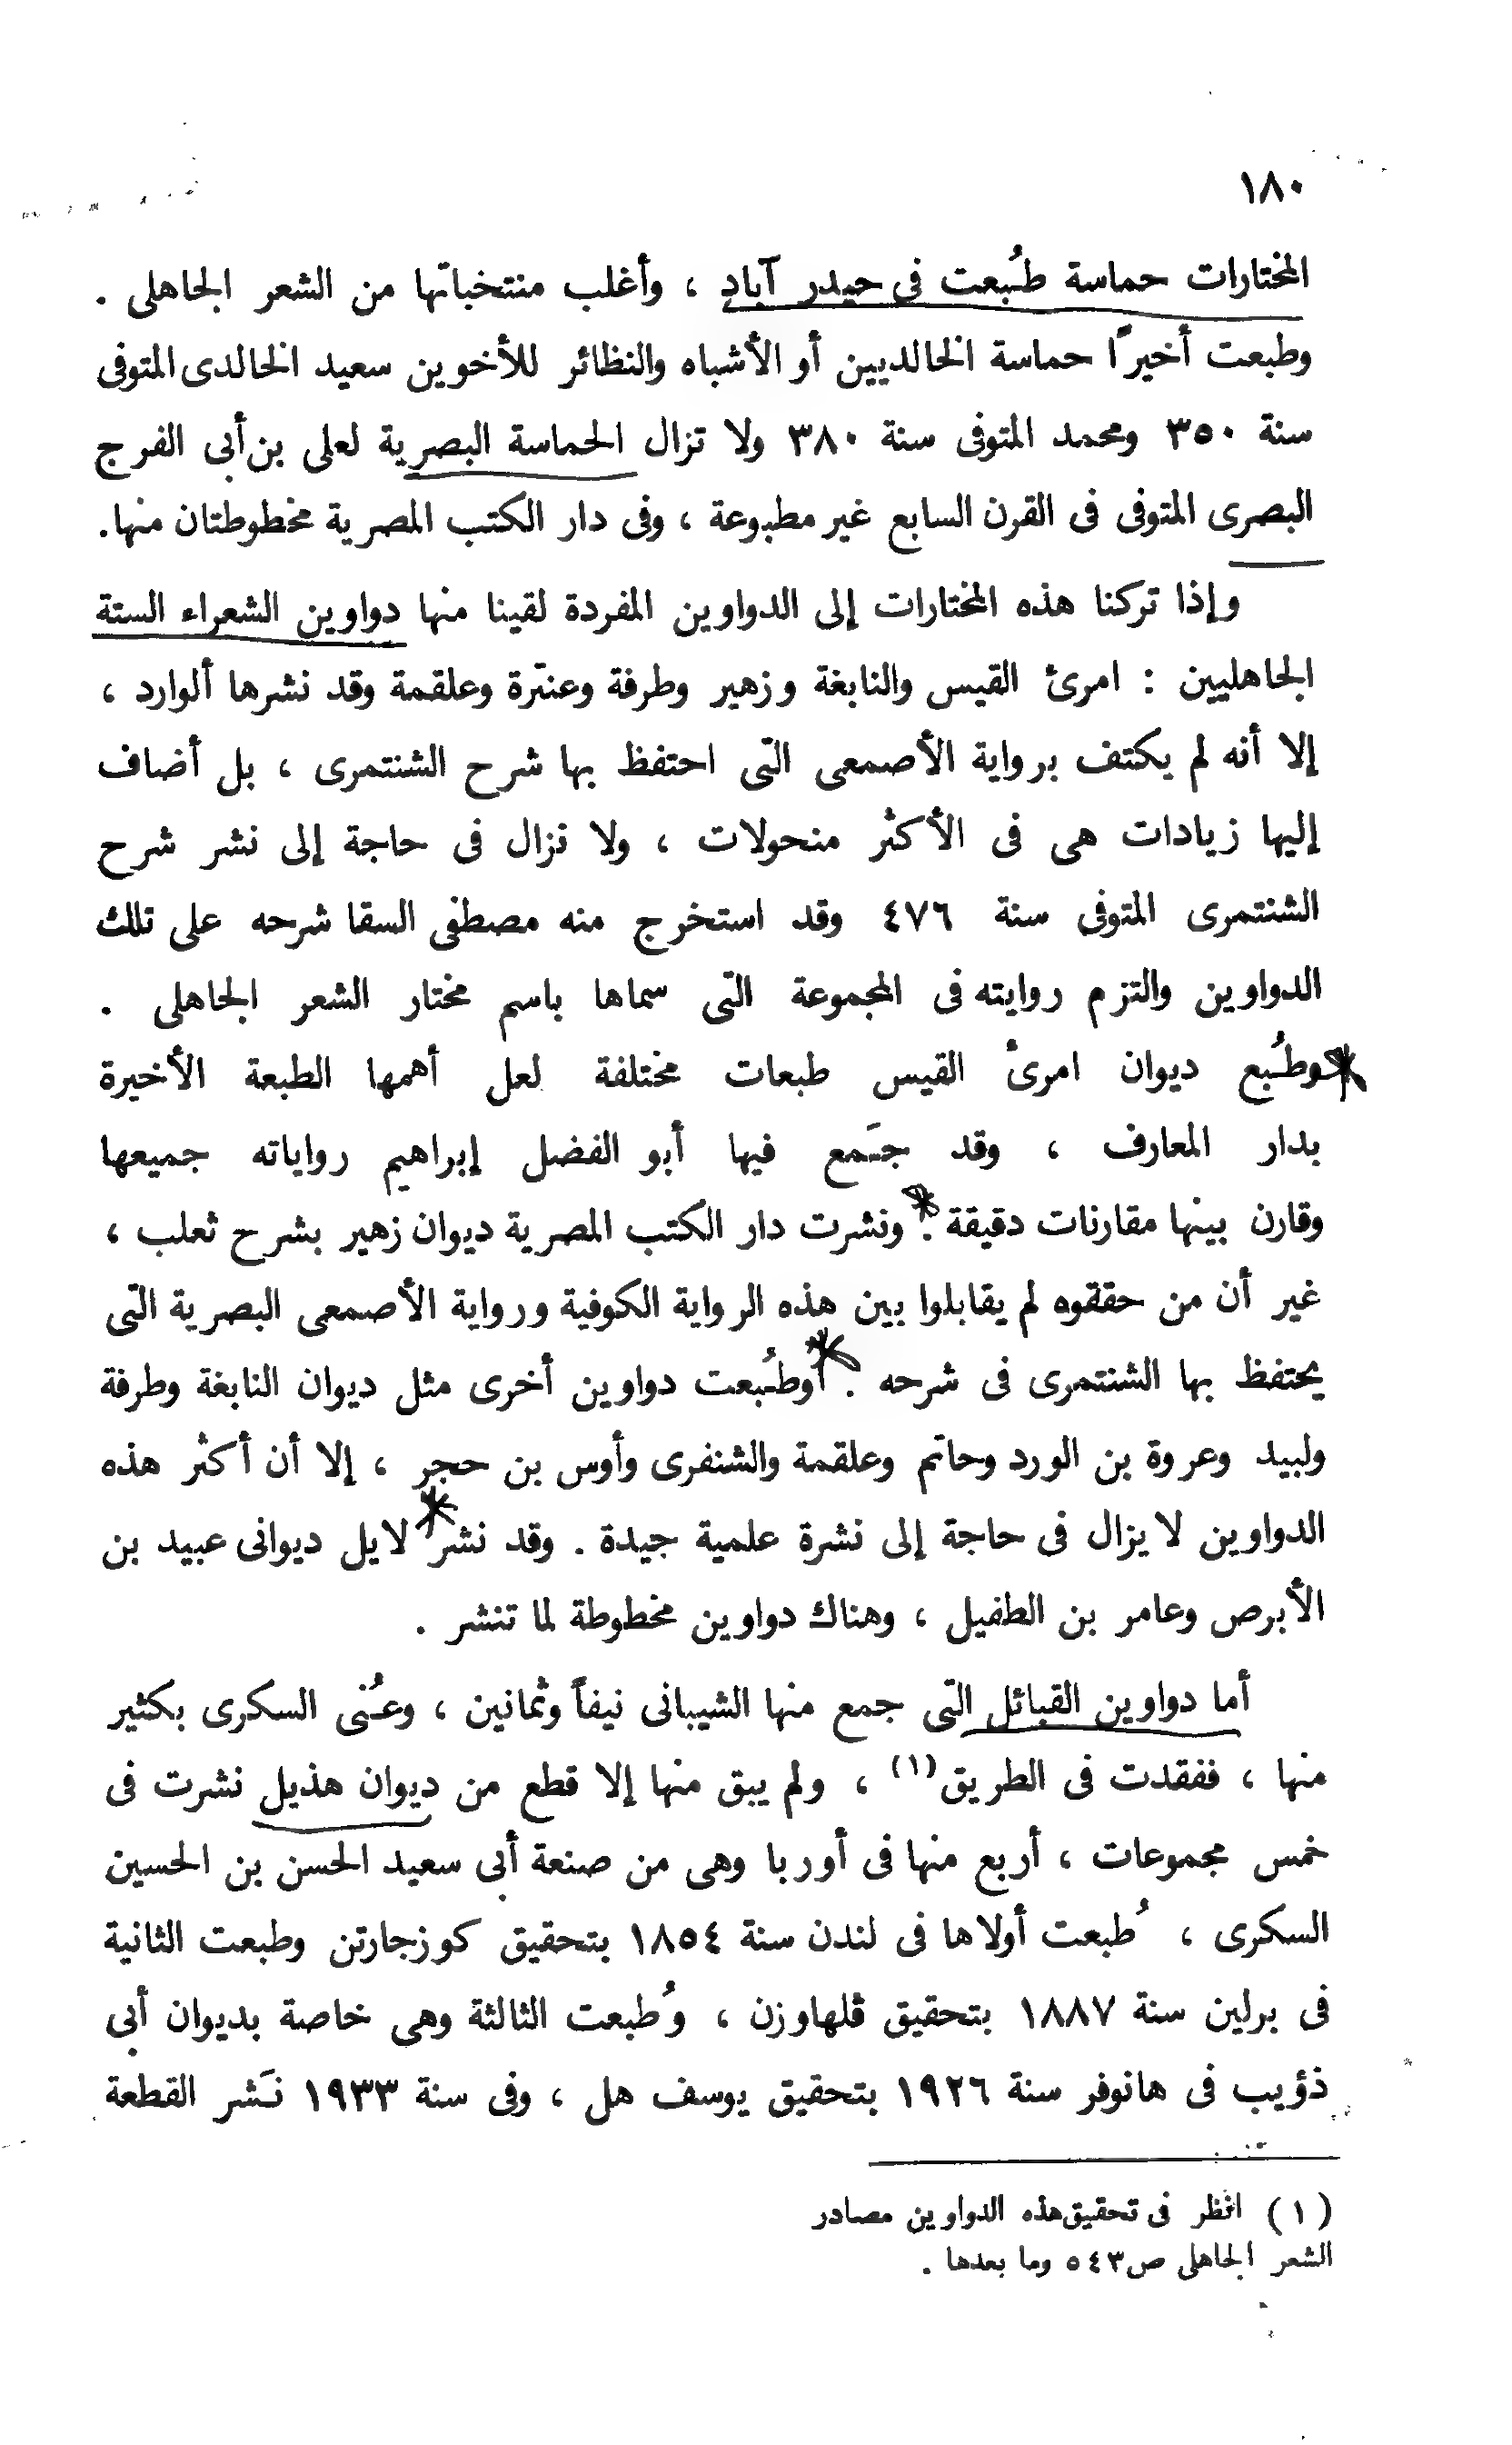 ١٨٠
المختارات حماسة طُبعت فى حيدر آباد ، وأغلب منتخباتها من الشعر الجاهلى .
وطبعت أخيرًا حماسة الخالديين أو الأشباه والنظائر للأخوين سعيد الخالدى المتوفى
سنة ٣٥٠ ومحمد المتوفى سنة ٣٨٠ ولا تزال الحماسة البصرية لعلى بن أبى الفرج
البصرى المتوفى فى القرن السابع غير مطبوعة ، وفى دار الكتب المصرية مخطوطتان منها.
وإذا تركنا هذه المختارات إلى الدواوين المفردة لقينا منها دواوين الشعراء الستة
الجاهليين : امرئ القيس والنابغة وزهير وطرفة وعنترة وعلقمة وقد نشرها ألوارد ،
إلا أنه لم يكتف برواية الأصمعى التى احتفظ بها شرح الشنتمرى ، بل أضاف
إليها زيادات هى فى الأكثر منحولات ، ولا نزال فى حاجة إلى نشر شرح
الشنتمرى المتوفى سنة ٤٧٦ وقد استخرج منه مصطفى السقا شرحه على تلك
الدواوين والتزم روايته فى المجموعة التى سماها باسم مختار الشعر الجاهلى .
وطُبع ديوان امرئ القيس طبعات مختلفة لعل أهمها الطبعة الأخيرة
بدار المعارف ، وقد جَمع فيها أبو الفضل إبراهيم رواياته جميعها
وقارن بينها مقارنات دقيقة . ونشرت دار الكتب المصرية ديوان زهير بشرح ثعلب ،
غير أن من حققوه لم يقابلوا بين هذه الرواية الكوفية ورواية الأصمعى البصرية التى
يحتفظ بها الشنتمرى فى شرحه . وطُبعت دواوين أخرى مثل ديوان النابغة وطرفة
ولبيد وعروة بن الورد وحاتم وعلقمة والشنفرى وأوس بن حجر ، إلا أن أكثر هذه
الدواوين لا يزال فى حاجة إلى نشرة علمية جيدة . وقد نشر لايل ديوانى عبيد بن
الأبرص وعامر بن الطفيل ، وهناك دواوين مخطوطة لما تنشر .
أما دواوين القبائل التى جمع منها الشيبانى نيفاً وثمانين ، وعُنى السكرى بكثير
منها ، ففقدت فى الطريق(١) ، ولم يبق منها إلا قطع من ديوان هذيل نشرت فى
خمس مجموعات ، أربع منها فى أوربا وهى من صنعة أبى سعيد الحسن بن الحسين
السكرى ، طُبعت أولاها فى لندن سنة ١٨٥٤ بتحقيق كوزجارتن وطبعت الثانية
فى برلين سنة ١٨٨٧ بتحقيق ڤلهاوزن ، وطُبعت الثالثة وهى خاصة بديوان أبى
ذؤيب فى هانوفر سنة ١٩٢٦ بتحقيق يوسف هل ، وفى سنة ١٩٣٣ نَشر القطعة
(١) انظر فى تحقيق هذه الدواوين مصادر
الشعر الجاهلى ص ٥٤٣ وما بعدها .